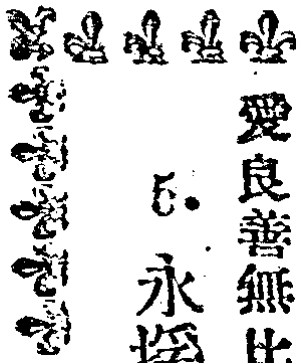 愛良善無比
5. 永